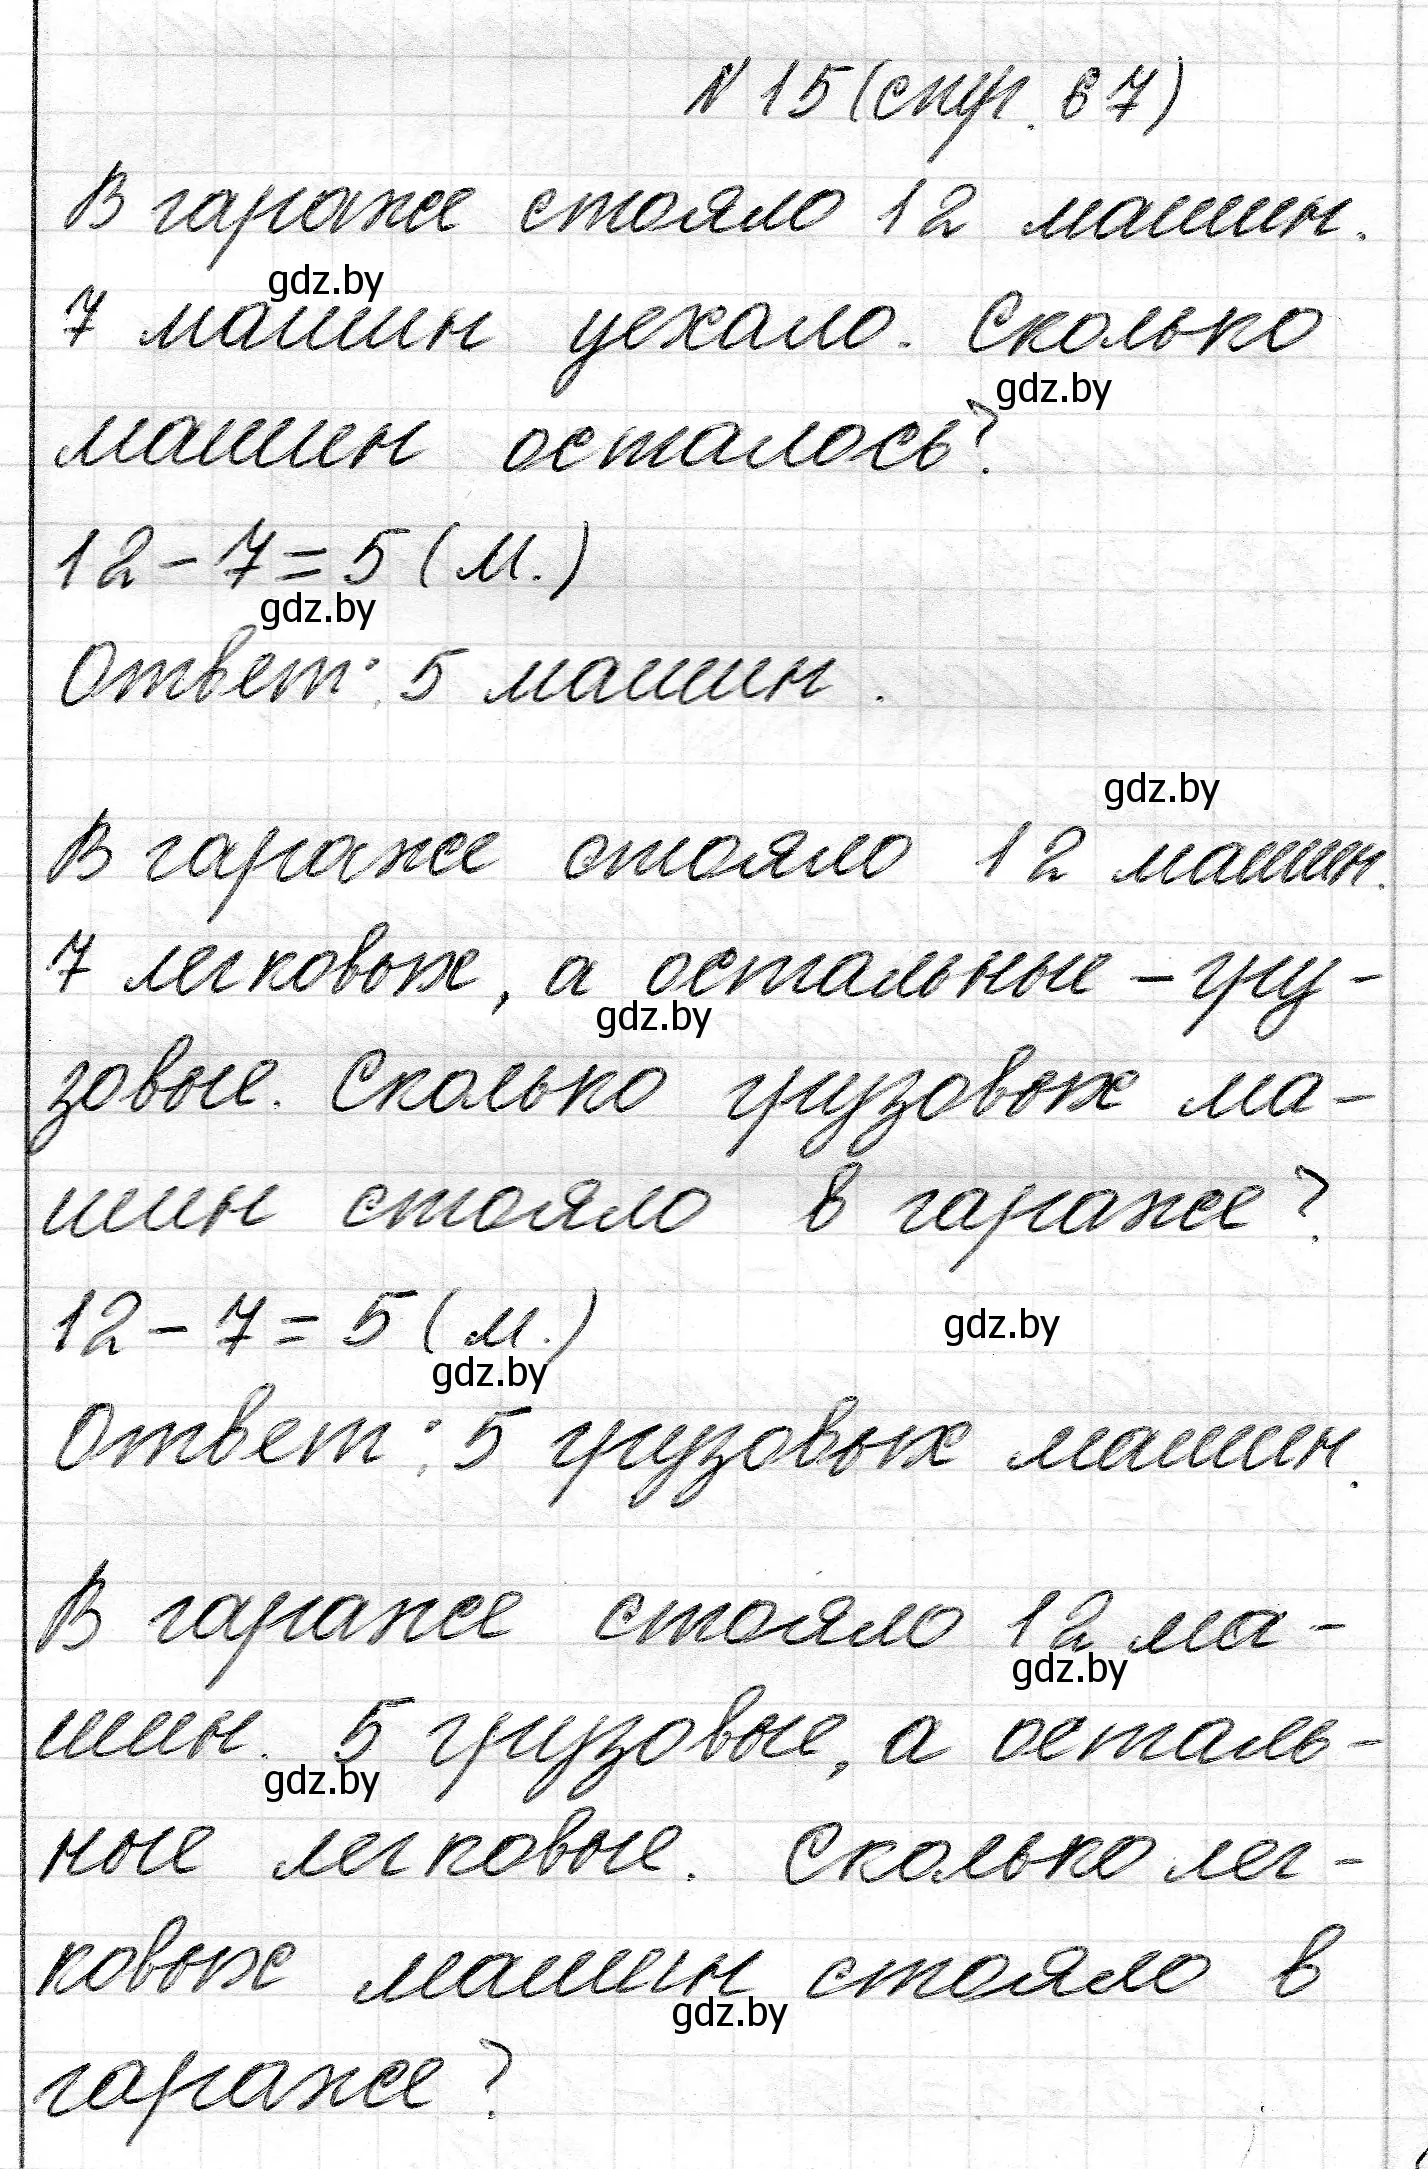 N 15 (стр. 67)
В гараже стояло 12 машин.
gdz.by
7 машин уехало. Сколько
gdz.by
машин осталось?
12 - 7 = 5 (м.)
gdz.by
Ответ: 5 машин.
gdz.by
В гараже стояло 12 машин.
7 легковых, а остальные – гру-
gdz.by
зовые. Сколько грузовых ма-
шин стояло в гараже?
12 - 7 = 5 (м.)
gdz.by
gdz.by
Ответ: 5 грузовых машин.
В гараже стояло 12 ма-
gdz.by
шин. 5 грузовые, а осталь-
gdz.by
ные легковые. Сколько лег-
ковых машин стояло в
gdz.by
гараже?